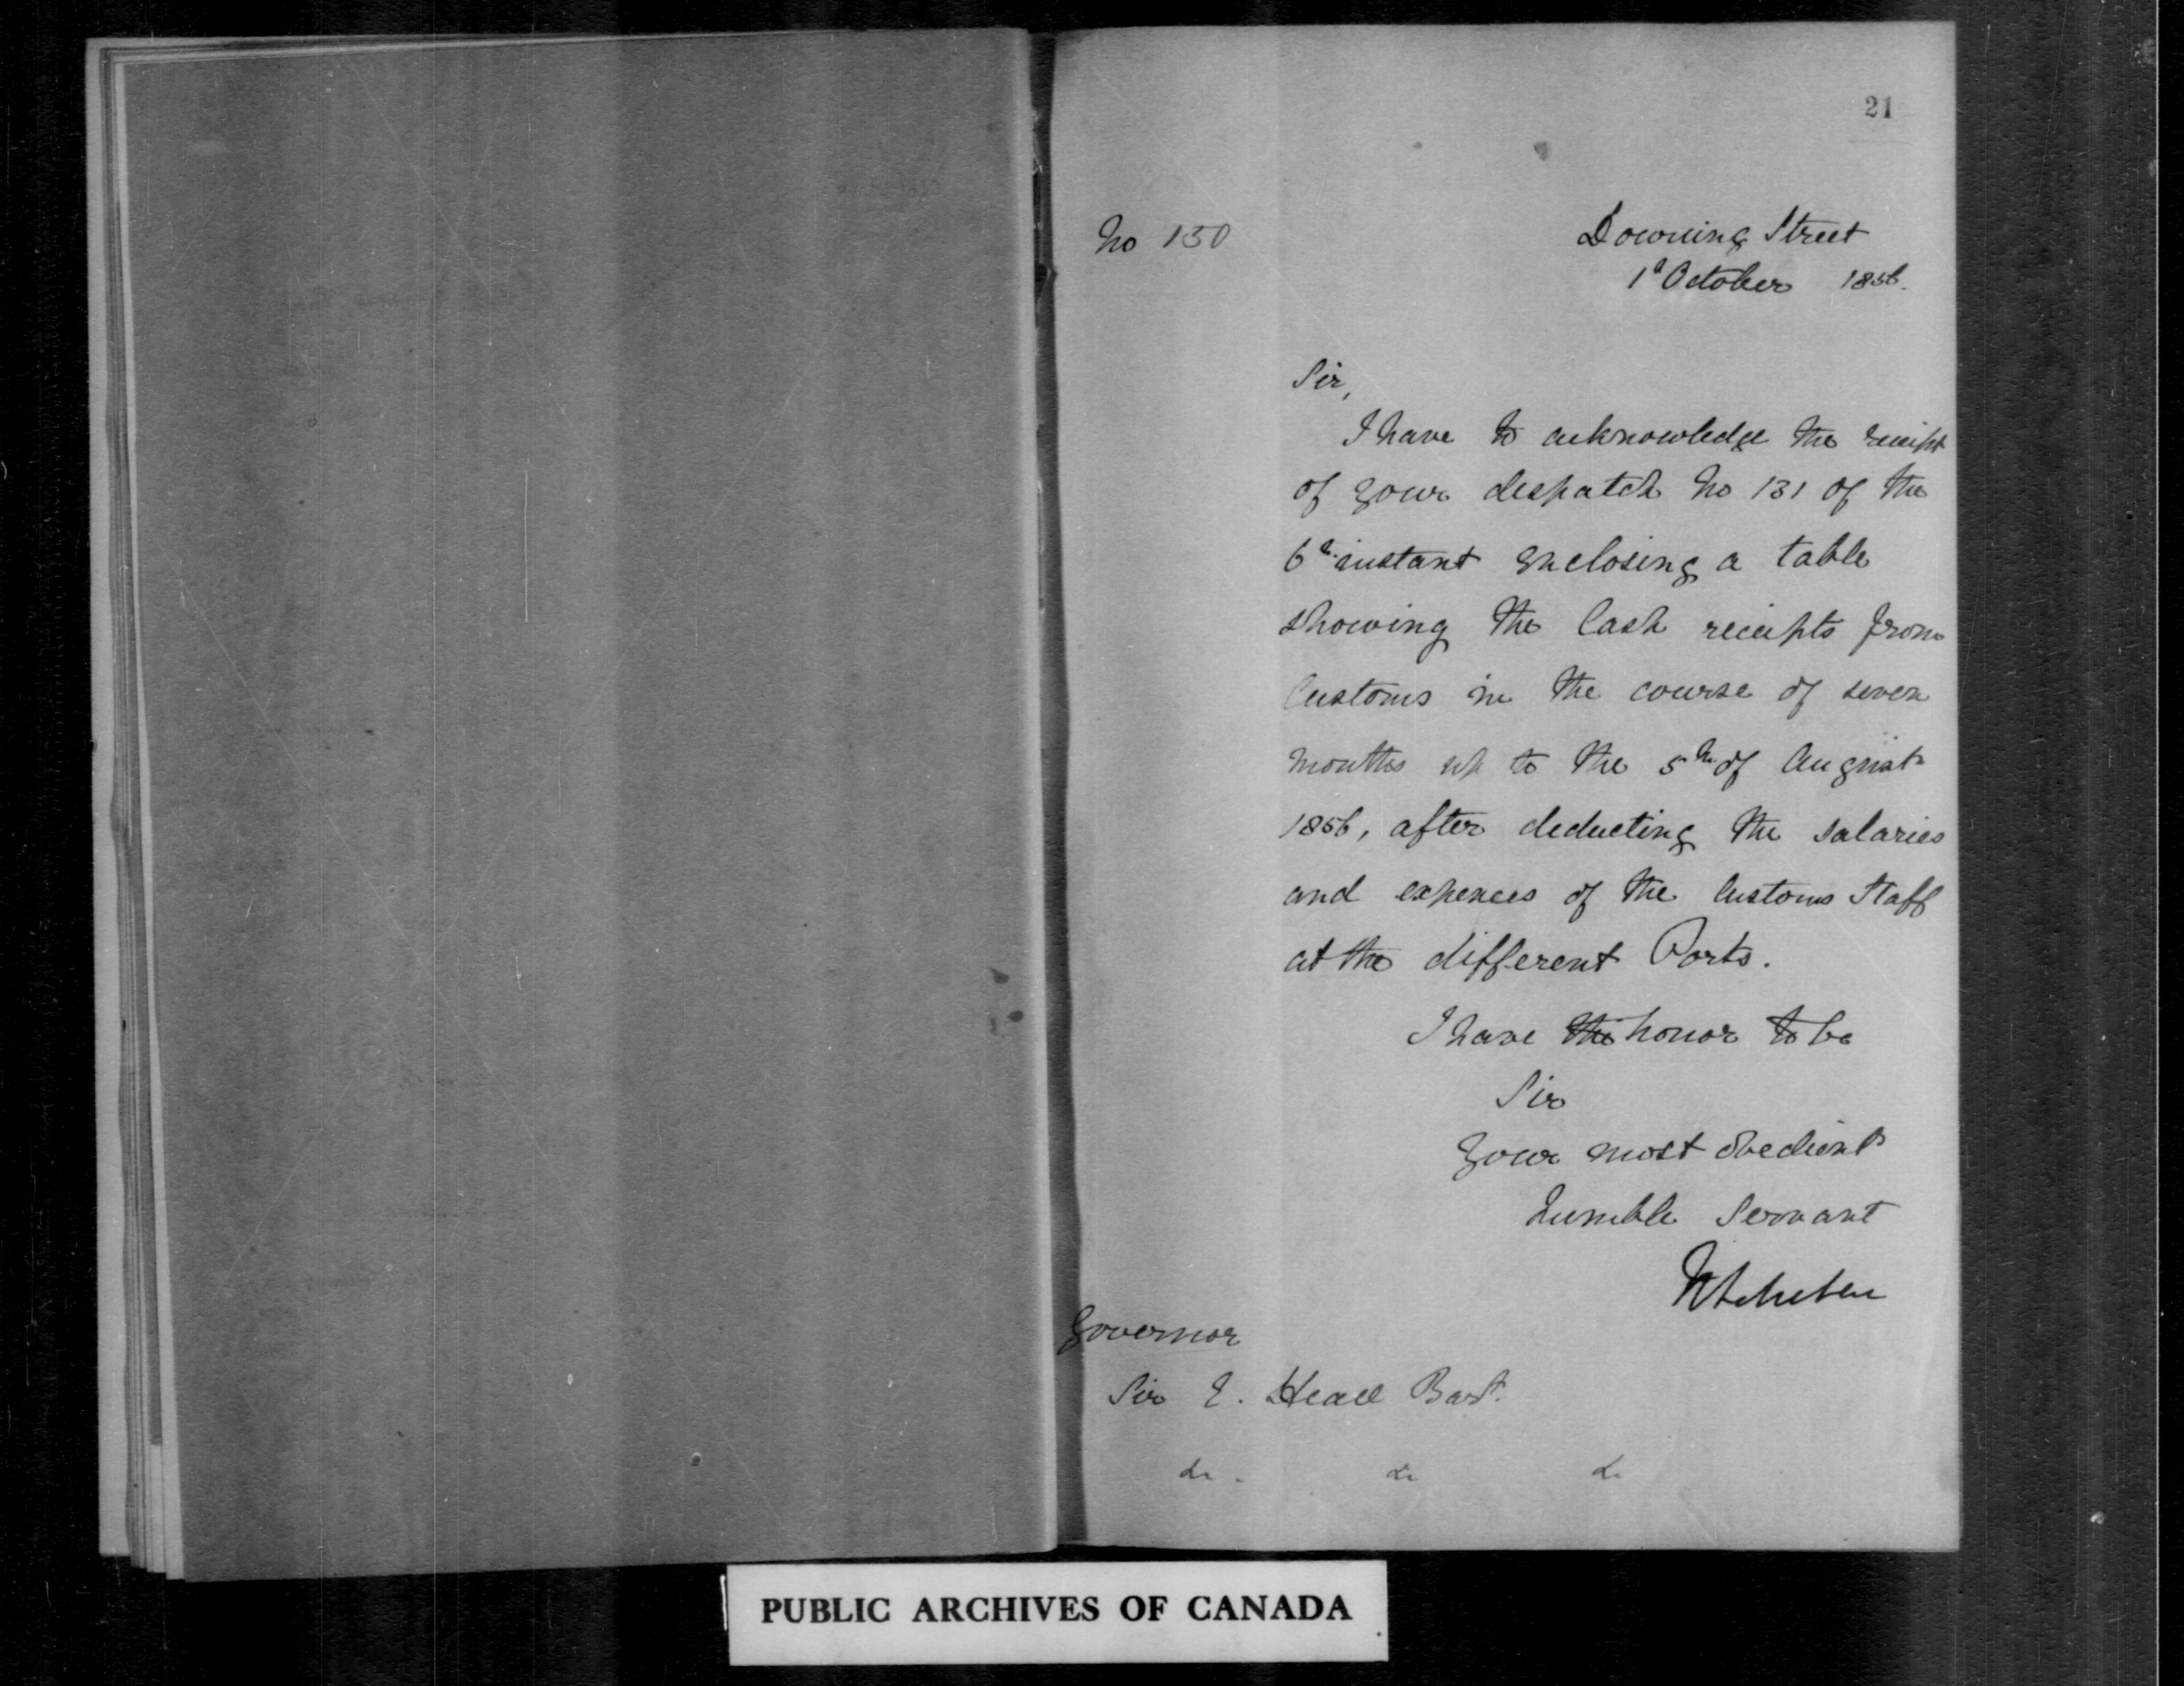 21
No 130
Downing Street
1st October 1856.
Sir,
I have to acknowledge the receipt
of your despatch No 131 of the
6th instant enclosing a table
showing the Cash receipts from
Customs in the course of seven
months up to the 5th of August
1856, after deducting the salaries
and expences of the Customs Staff
at the different Ports.
I have the honor to be
Sir
Your most obedient
humble Servant
Governor
Sir E. Head Bart.
&c. &c &c
PUBLIC ARCHIVES OF CANADA